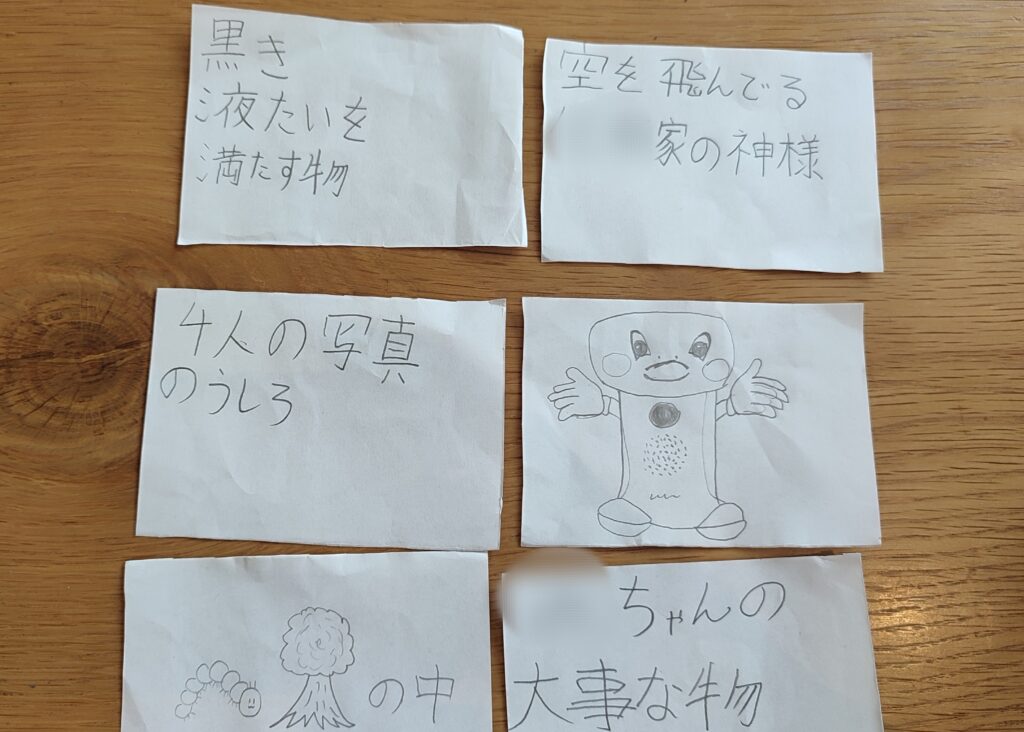 黒き
液たいを
満たす物
空を飛んでる
家の神様
4人の写真
のうしろ
の中
ちゃんの
大事な物